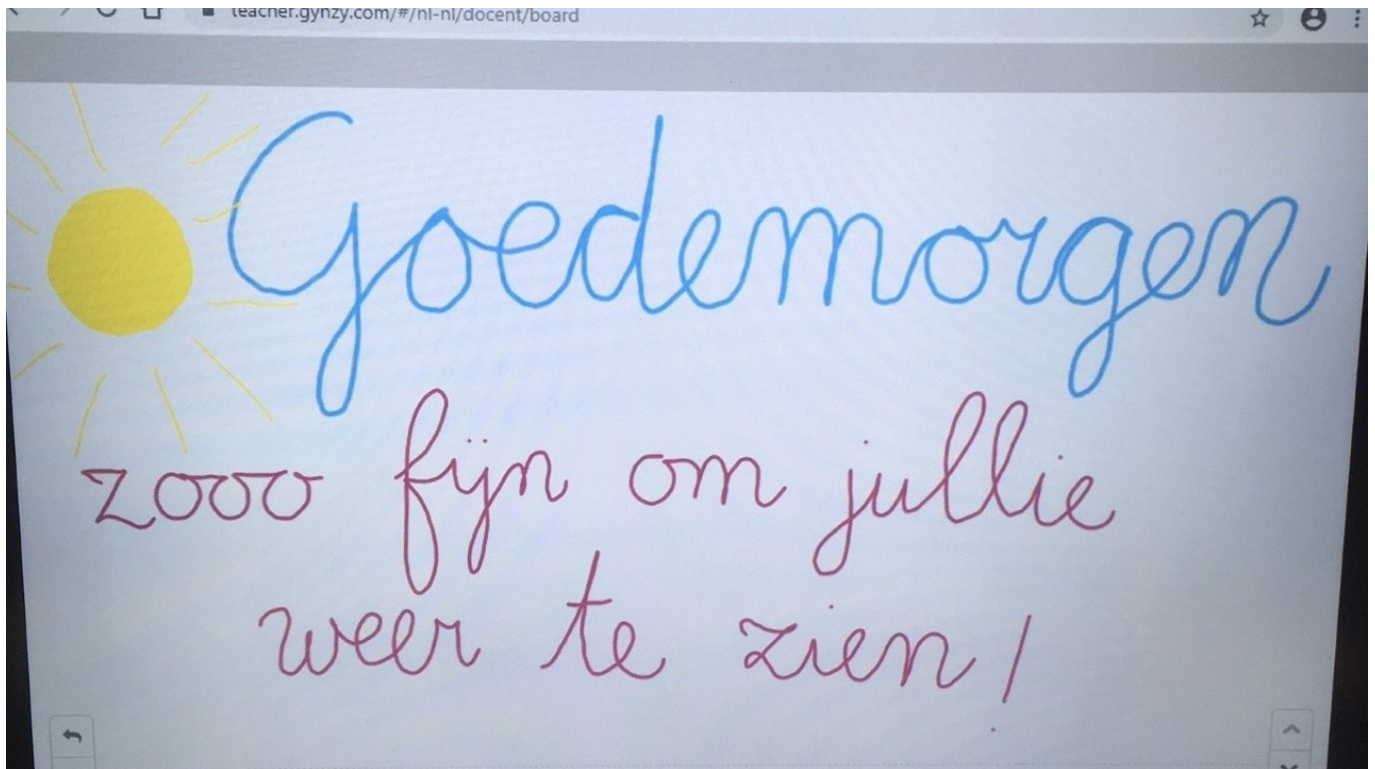 teacher.gynzy.com/#/nl-nl/docent/board
Goedemorgen
zooo fijn om jullie
weer te zien!